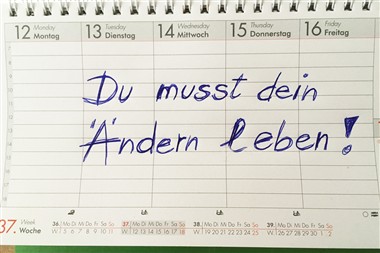 12 Monday Montag 13 Tuesday Dienstag 14 Wednesday Mittwoch 15 Thursday Donnerstag 16 Friday Freitag
Du musst dein
Ändern leben!
37. Week Woche
36. Mo Di Mi Do Fr Sa So 37. Mo Di Mi Do Fr Sa So 38. Mo Di Mi Do Fr Sa So 39. Mo Di Mi Do Fr Sa So
W. 5 6 7 8 9 10 11 W. 12 13 14 15 16 17 18 W. 19 20 21 22 23 24 25 W. 26 27 28 29 30 1 2